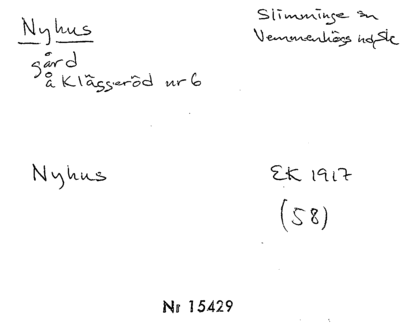 Nyhus
gård
å Kläggeröd nr 6
Slimminge sn
Vemmenhögs hd Sk
Nyhus
EK 1917
(58)
Nr 15429